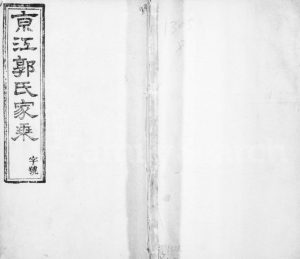 京江郭氏家乘
字號